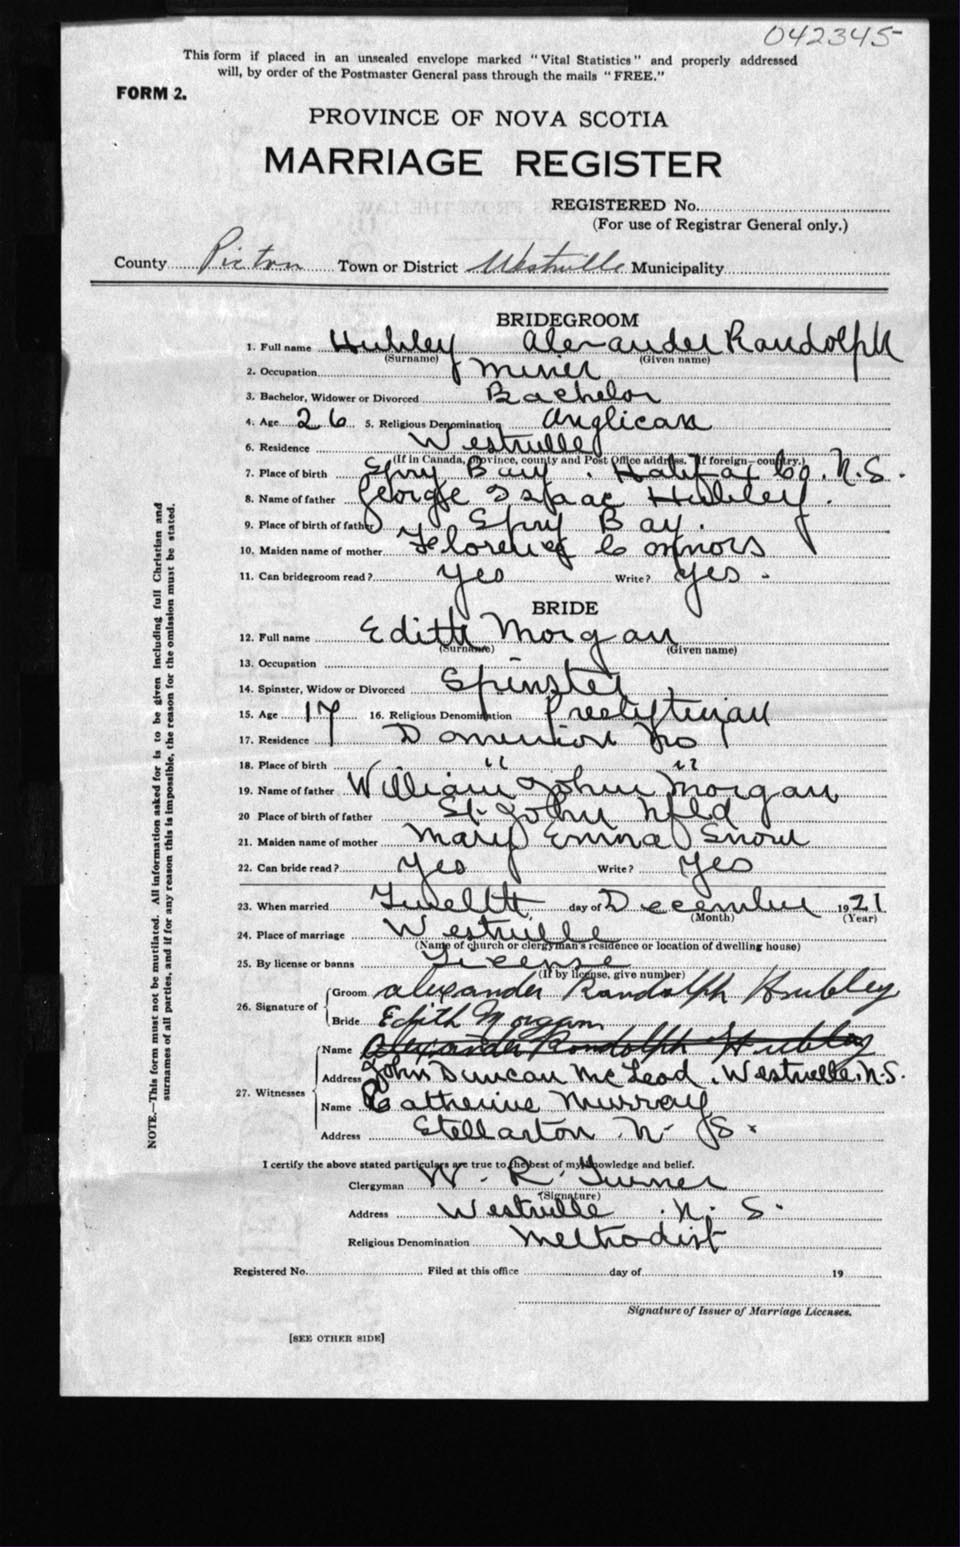 042345
This form if placed in an unsealed envelope marked "Vital Statistics" and properly addressed
will, by order of the Postmaster General pass through the mails "FREE."
FORM 2.
PROVINCE OF NOVA SCOTIA
MARRIAGE REGISTER
REGISTERED No.
(For use of Registrar General only.)
County Pictou Town or District Westville Municipality
BRIDEGROOM
1. Full name Hubley Alexander Randolph
(Surname) (Given name)
2. Occupation Miner
3. Bachelor, Widower or Divorced Bachelor
4. Age 26 5. Religious Denomination Anglican
6. Residence Westville
(If in Canada, province, county and Post Office address. If foreign—country.)
7. Place of birth Spry Bay. Halifax Co. N.S.
8. Name of father George Isaac Hubley.
9. Place of birth of father Spry Bay.
10. Maiden name of mother Florence Connors
11. Can bridegroom read? Yes Write? Yes.
BRIDE
12. Full name Edith Morgan
(Surname) (Given name)
13. Occupation
14. Spinster, Widow or Divorced Spinster
15. Age 17 16. Religious Denomination Presbyterian
17. Residence Dominion No 1
18. Place of birth " "
19. Name of father William John Morgan
20 Place of birth of father St. John Nfld
21. Maiden name of mother Mary Emma Snow
22. Can bride read? Yes Write? Yes
23. When married Twelfth day of December 1921
(Month) (Year)
24. Place of marriage Westville
(Name of church or clergyman's residence or location of dwelling house)
25. By license or banns License
(If by license, give number)
26. Signature of Groom Alexander Randolph Hubley
Bride Edith Morgan
27. Witnesses Name Alexander Randolph Hubley
Address John Duncan McLeod. Westville. N.S.
Name Catherine Murray
Address Stellarton N. S.
I certify the above stated particulars are true to the best of my knowledge and belief.
Clergyman W. R. Turner
(Signature)
Address Westville N. S.
Religious Denomination Methodist
Registered No. Filed at this office day of 19
Signature of Issuer of Marriage Licenses.
[SEE OTHER SIDE]
NOTE.—This form must not be mutilated. All information asked for is to be given including full Christian and
surnames of all parties, and if for any reason this is impossible, the reason for the omission must be stated.